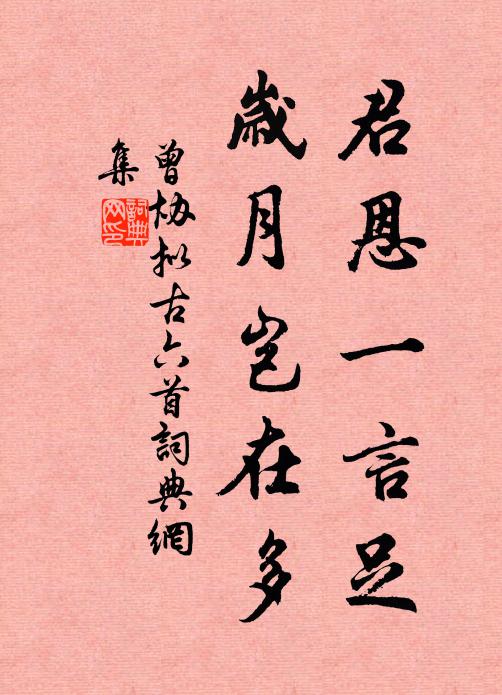 君恩一言足
歲月豈在多
曾協擬古六首詞典網
集
詞典
網印